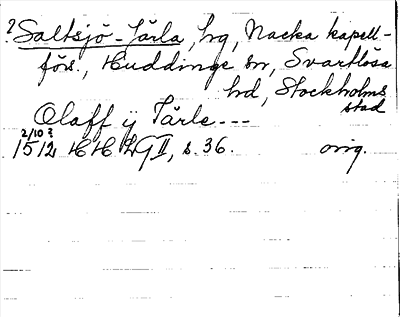 ? Saltsjö-Järla, hg, Nacka kapell-
förs., Huddinge sn, Svartlösa
hd, Stockholms
stad
Olaff ÿ Järle---
2/10 ?
1512 HH ÄG II, s. 36. orig.